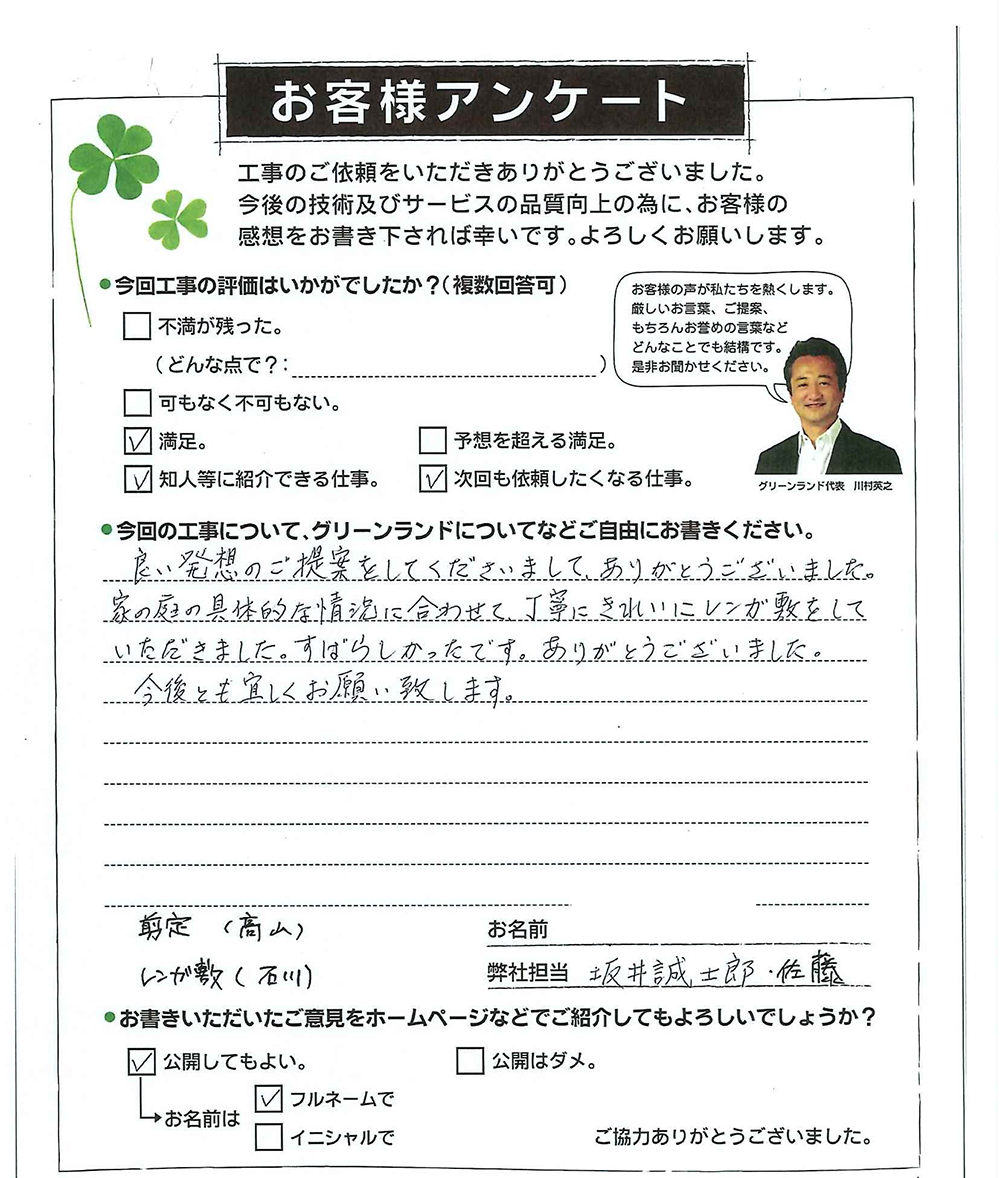 お客様アンケート
工事のご依頼をいただきありがとうございました。
今後の技術及びサービスの品質向上の為に、お客様の
感想をお書き下されば幸いです。よろしくお願いします。
●今回工事の評価はいかがでしたか？（複数回答可）
お客様の声が私たちを熱くします。
厳しいお言葉、ご提案、
もちろんお誉めの言葉など
どんなことでも結構です。
是非お聞かせください。
□ 不満が残った。
（どんな点で？：　）
□ 可もなく不可もない。
☑ 満足。　□ 予想を超える満足。
☑ 知人等に紹介できる仕事。　☑ 次回も依頼したくなる仕事。
グリーンランド代表　川村英之
●今回の工事について、グリーンランドについてなどご自由にお書きください。
良い発想のご提案をしてくださいまして、ありがとうございました。
家の庭の具体的な情況に合わせて、丁寧にきれいにレンガ敷をして
いただきました。すばらしかったです。ありがとうございました。
今後とも宜しくお願い致します。
剪定　（髙山）
レンガ敷（石川）
お名前
弊社担当　坂井誠士郎・佐藤
●お書きいただいたご意見をホームページなどでご紹介してもよろしいでしょうか？
☑ 公開してもよい。　□ 公開はダメ。
お名前は　☑ フルネームで
□ イニシャルで
ご協力ありがとうございました。